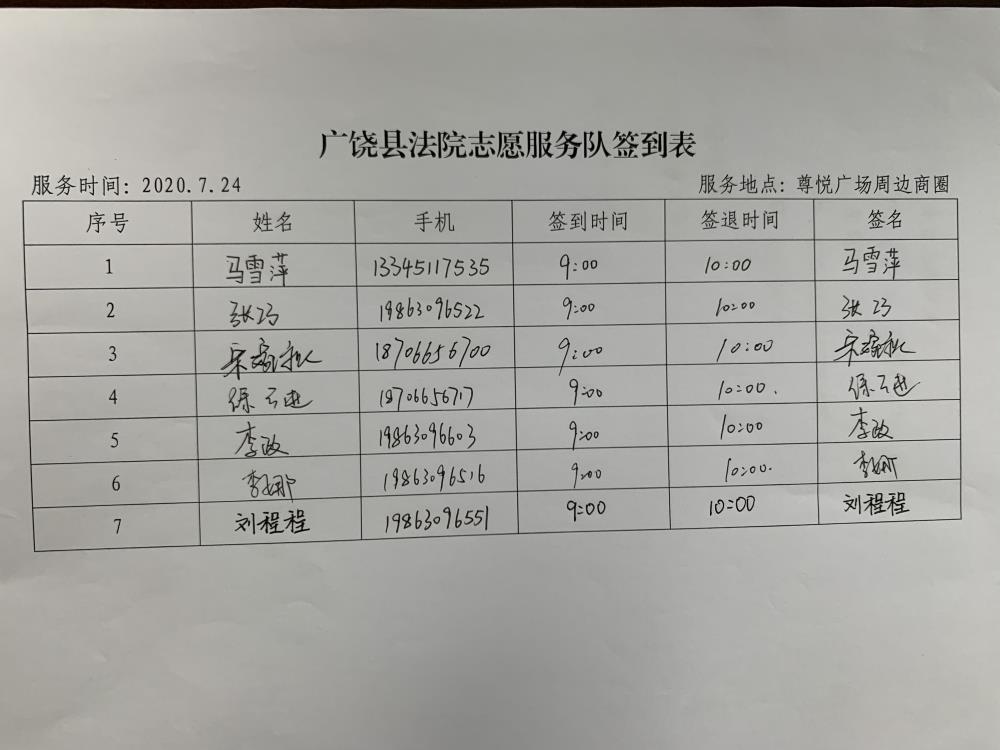 广饶县法院志愿服务队签到表
服务时间: 2020.7.24 服务地点: 尊悦广场周边商圈
序号 姓名 手机 签到时间 签退时间 签名
1 马雪萍 13345117535 9:00 10:00 马雪萍
2 张巧 19863096522 9:00 10:00 张巧
3 宋 18706656700 9:00 10:00 宋
4 徐云进 18706656717 9:00 10:00. 徐云进
5 李政 19863096603 9:00 10:00 李政
6 李娜 19863096516 9:00 10:00. 李娜
7 刘程程 19863096551 9:00 10:00 刘程程